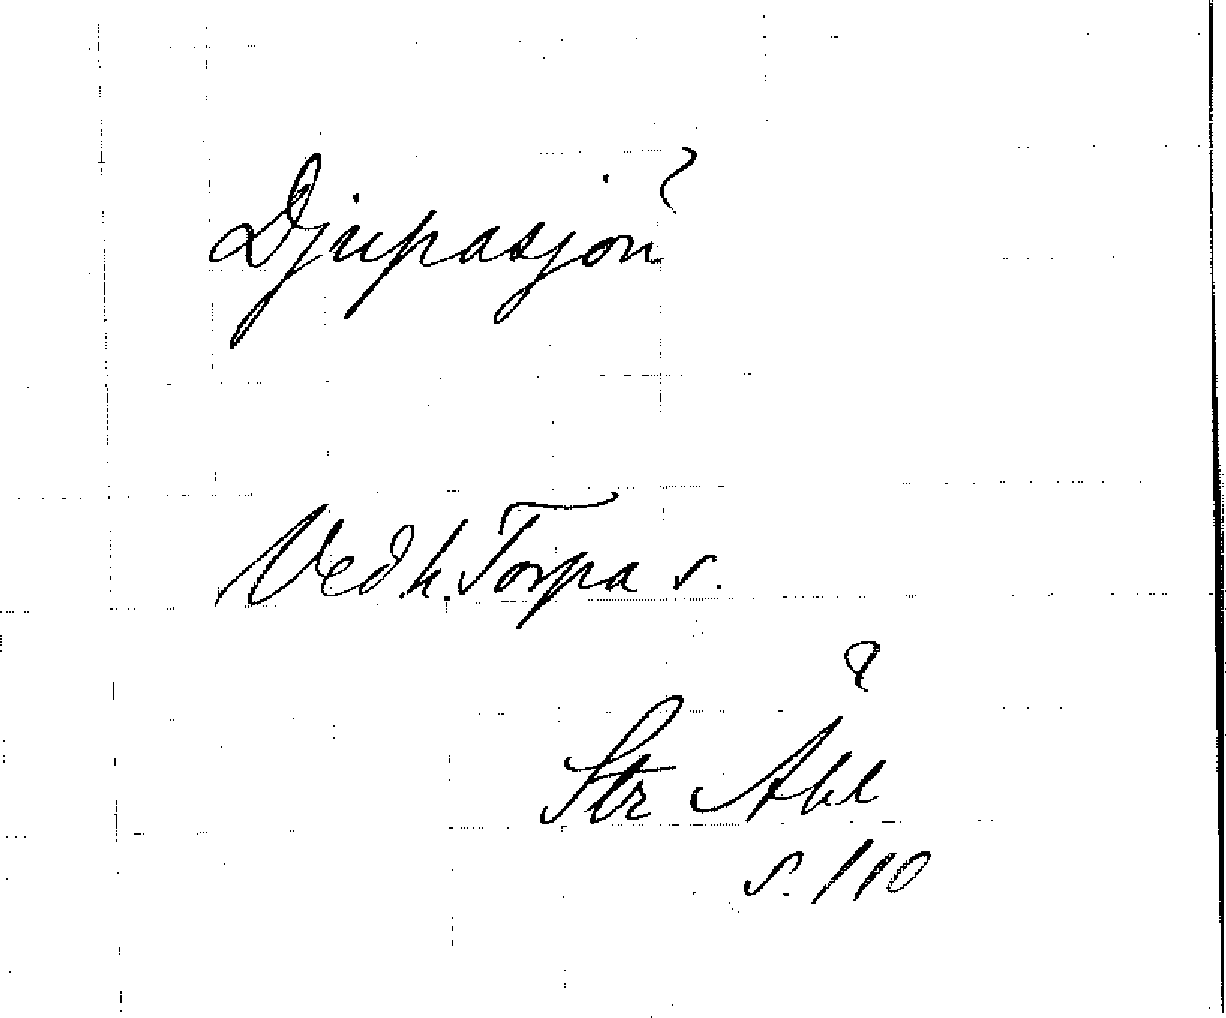 Djupasjön
Vedh. Torpa s.
Str Åbl
s. 110